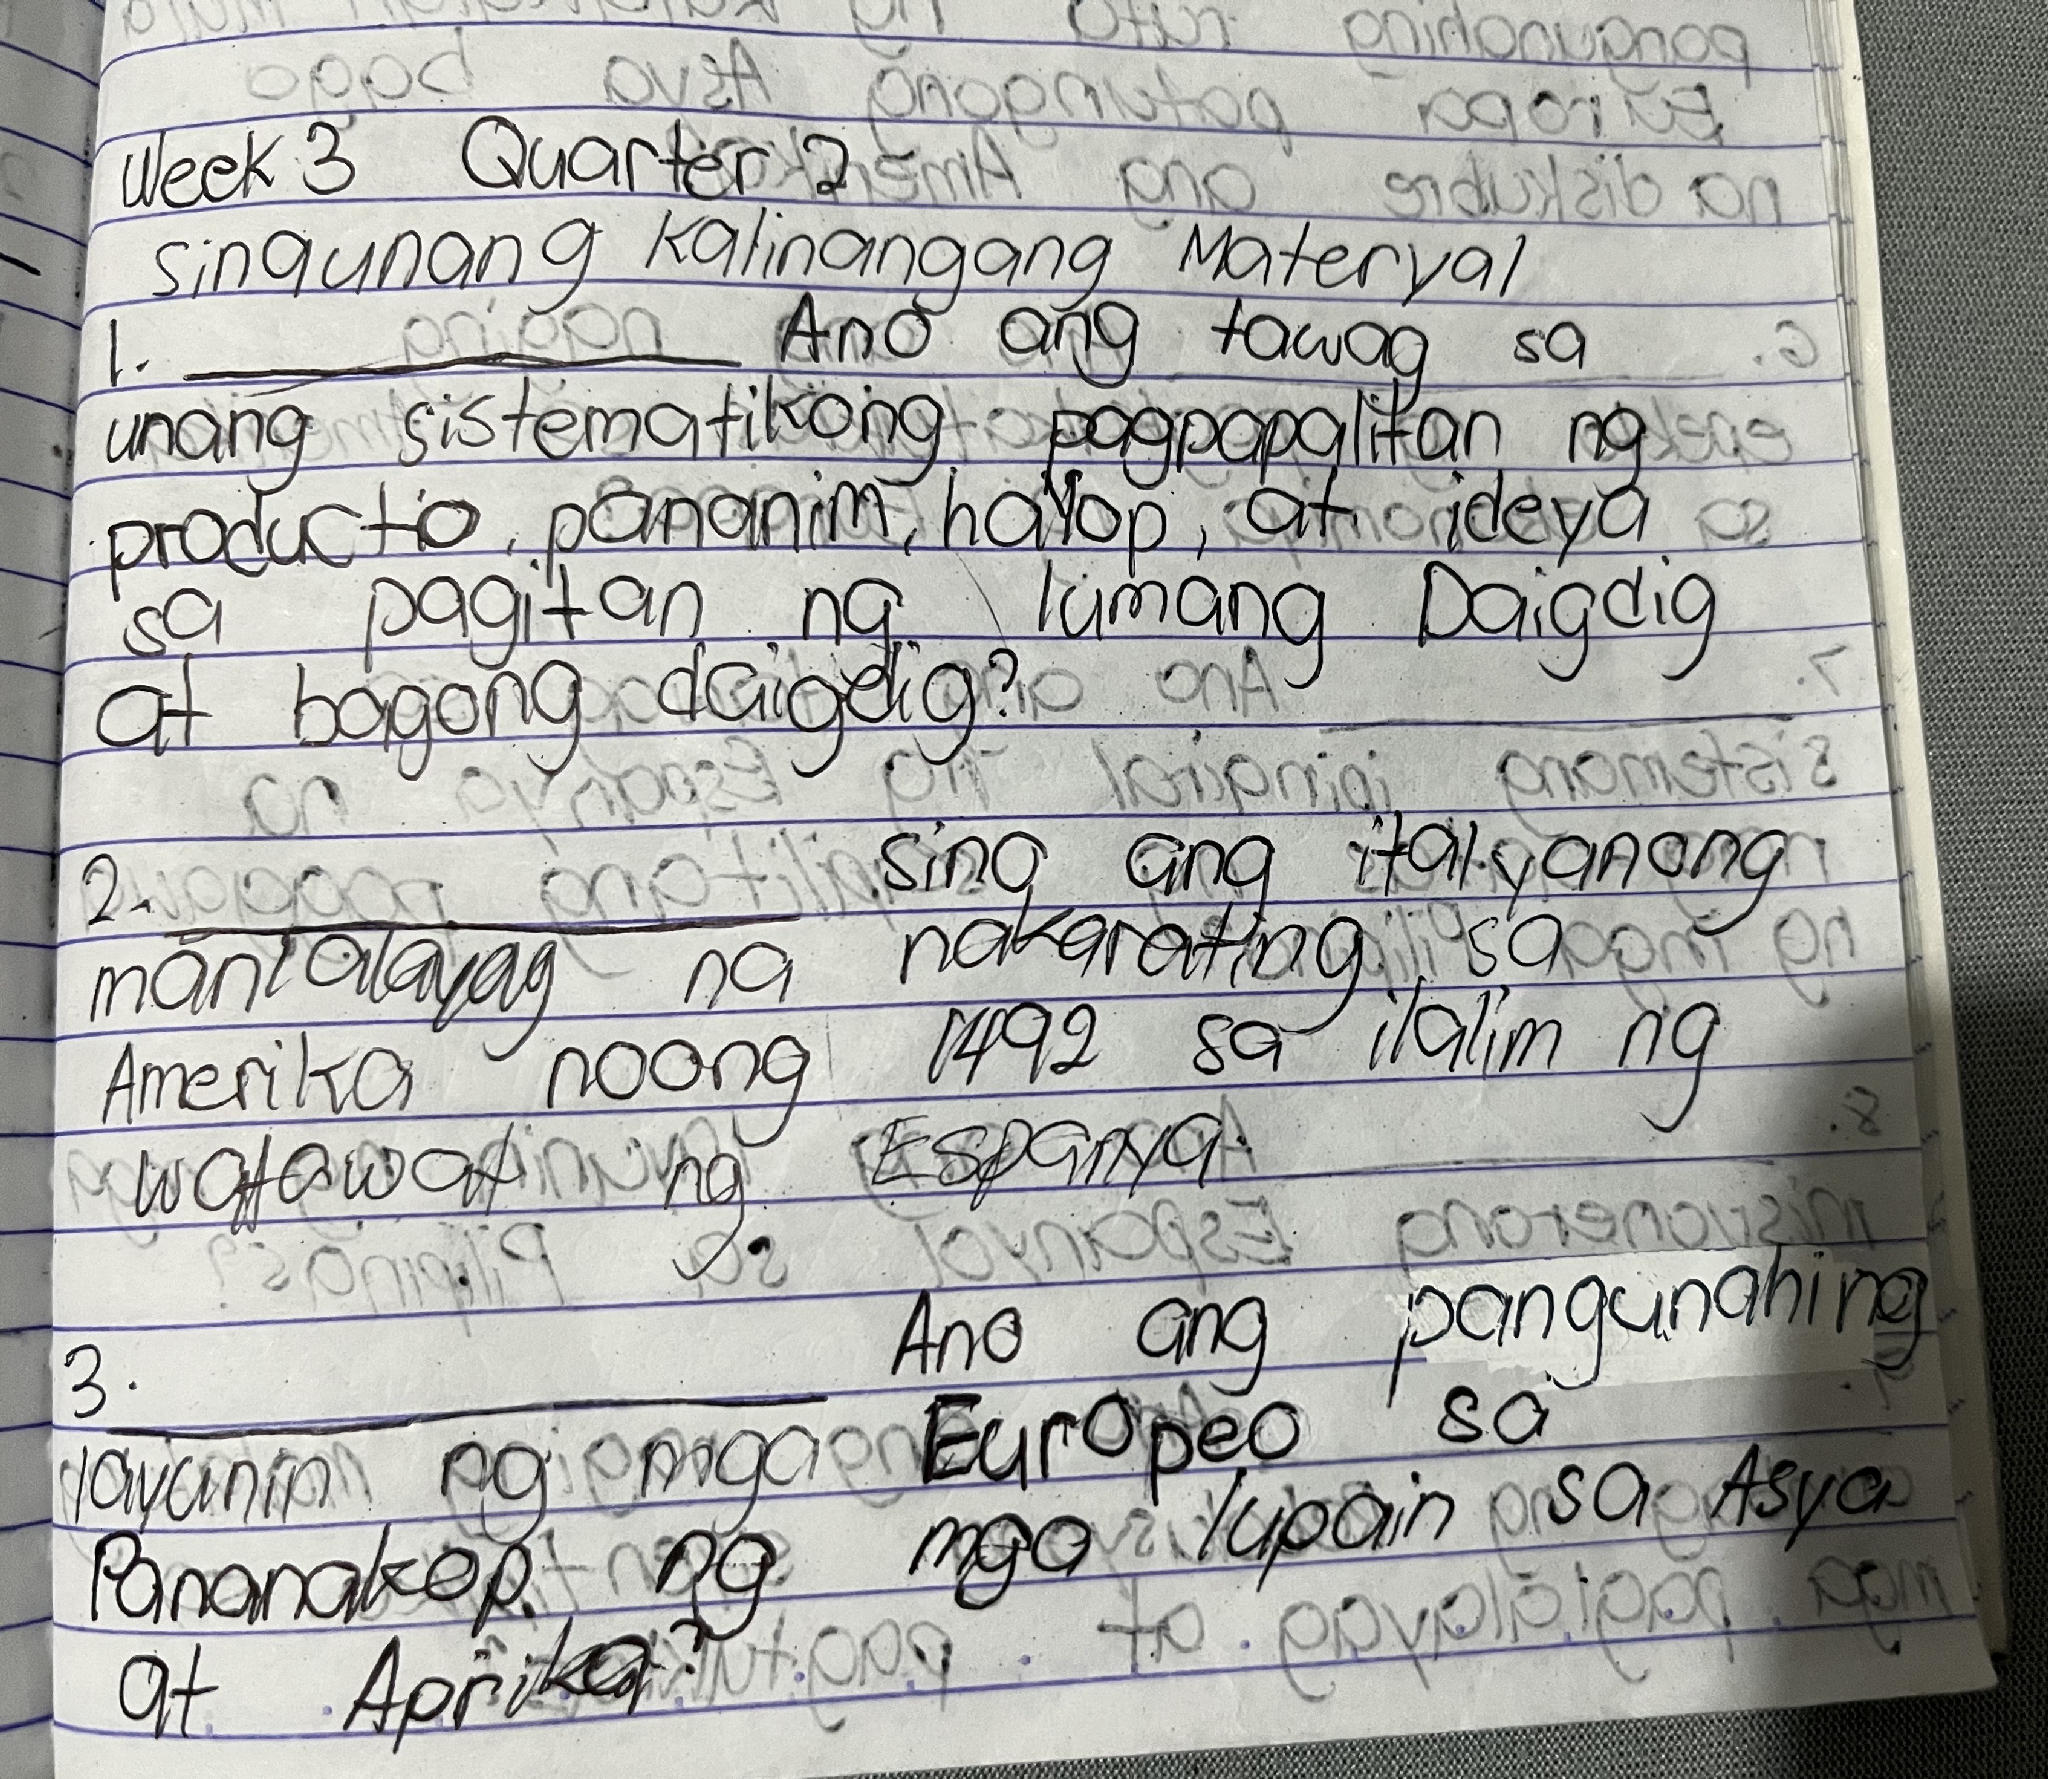 Week 3 Quarter 2
sinaunang Kalinangang Materyal
1. __________ Ano ang tawag sa
unang sistematikong pagpapalitan ng
producto, pananim, hayop, at ideya
sa pagitan ng lumang Daigdig
at bagong daigdig?
2. __________ sino ang italyanong
manlalayag na nakarating sa
Amerika noong 1492 sa ilalim ng
watawat ng Espanya.
3. __________ Ano ang pangunahing
layunin ng mga Europeo sa
Pananakop ng mga lupain sa Asya
at Aprika?